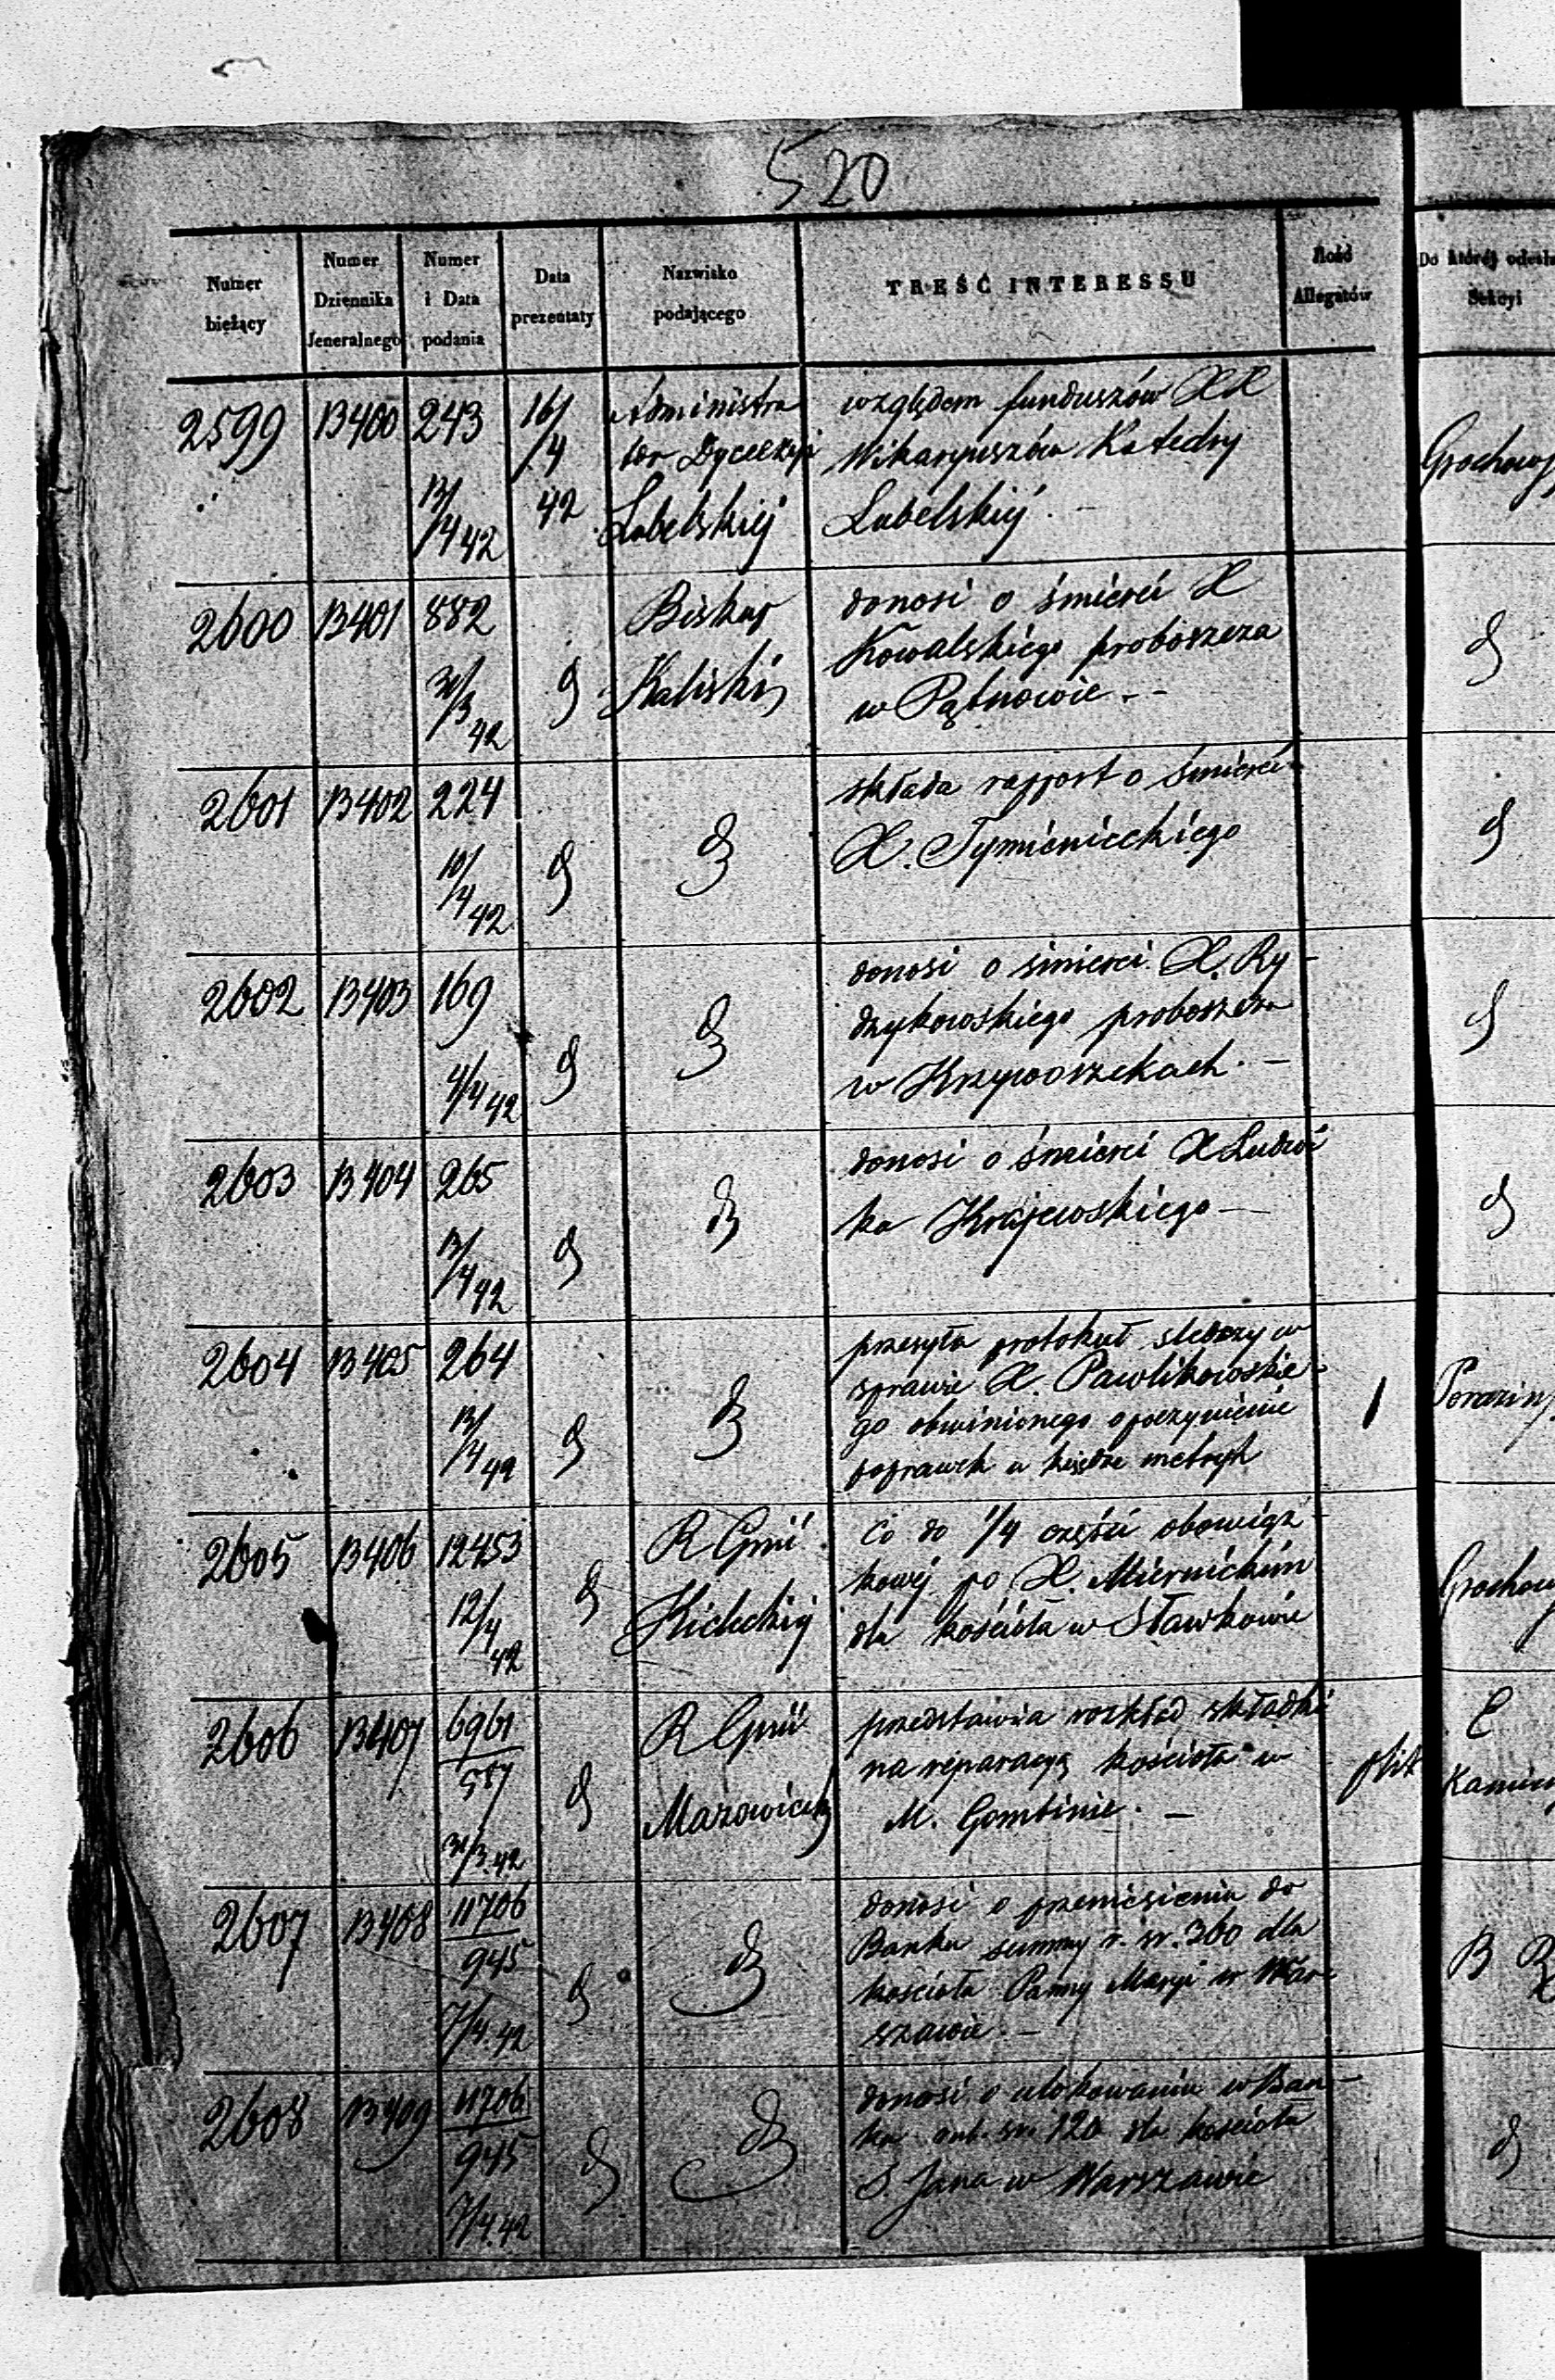 520
Numer bieżący
Numer Dziennika Jeneralnego
Numer i Data podania
Data prezentaty
Nazwisko podającego
TREŚĆ INTERESSU
Ilość Allegatów
Do której odesła
Sekcyi
2599 13400 243 13/4 42 16/4 42
Administra
tor Dyecezyi
Lubelskiej
względem funduszów XX
Wikaryuszów Katedry
Lubelskiej. -
Grochow
2600 13401 882 31/3 42 d
Biskup
Kaliski
donosi o śmierci X
Kowalskiego proboszcza
w Pątnowie. -
d
2601 13402 224 10/4 42 d d
składa rapport o śmierci
X. Tymienieckiego
d
2602 13403 169 4/4 42 d d
donosi o śmierci X. Ry-
dzykowskiego proboszcza
w Krzyworzekach. -
d
2603 13404 265 13/4 42 d d
donosi o śmierci X Ludwi
ka Krajewskiego -
d
2604 13405 264 13/4 42 d d
przesyła protokuł śledczy w
sprawie X. Pawlikowskie-
go obwinionego o poczynienie
poprawek w księdze metryk
1
2605 13406 12453 12/4 42 d
R Gnii
Kieleckiej
Co do 1/4 części obowiąz
kowej po X. Miernickim
dla kościoła w Sławkowie
Grochow
2606 13407 6961 557 31/3.42 d
R Gnii
Mazowieck
przedstawia rozkład składki
na reparacyą kościoła w
M. Gombinie. -
plik
C
Kamien
2607 13408 11706 945 7/4.42 d d
donosi o przeniesieniu do
Banku summy r. sr. 360 dla
kościoła Panny Maryi w War-
szawie. -
B
2608 13409 11706 945 7/4.42 d d
donosi o ulokowaniu w Ban-
ku rub. sr. 120 dla kościoła
S. Jana w Warszawie
d